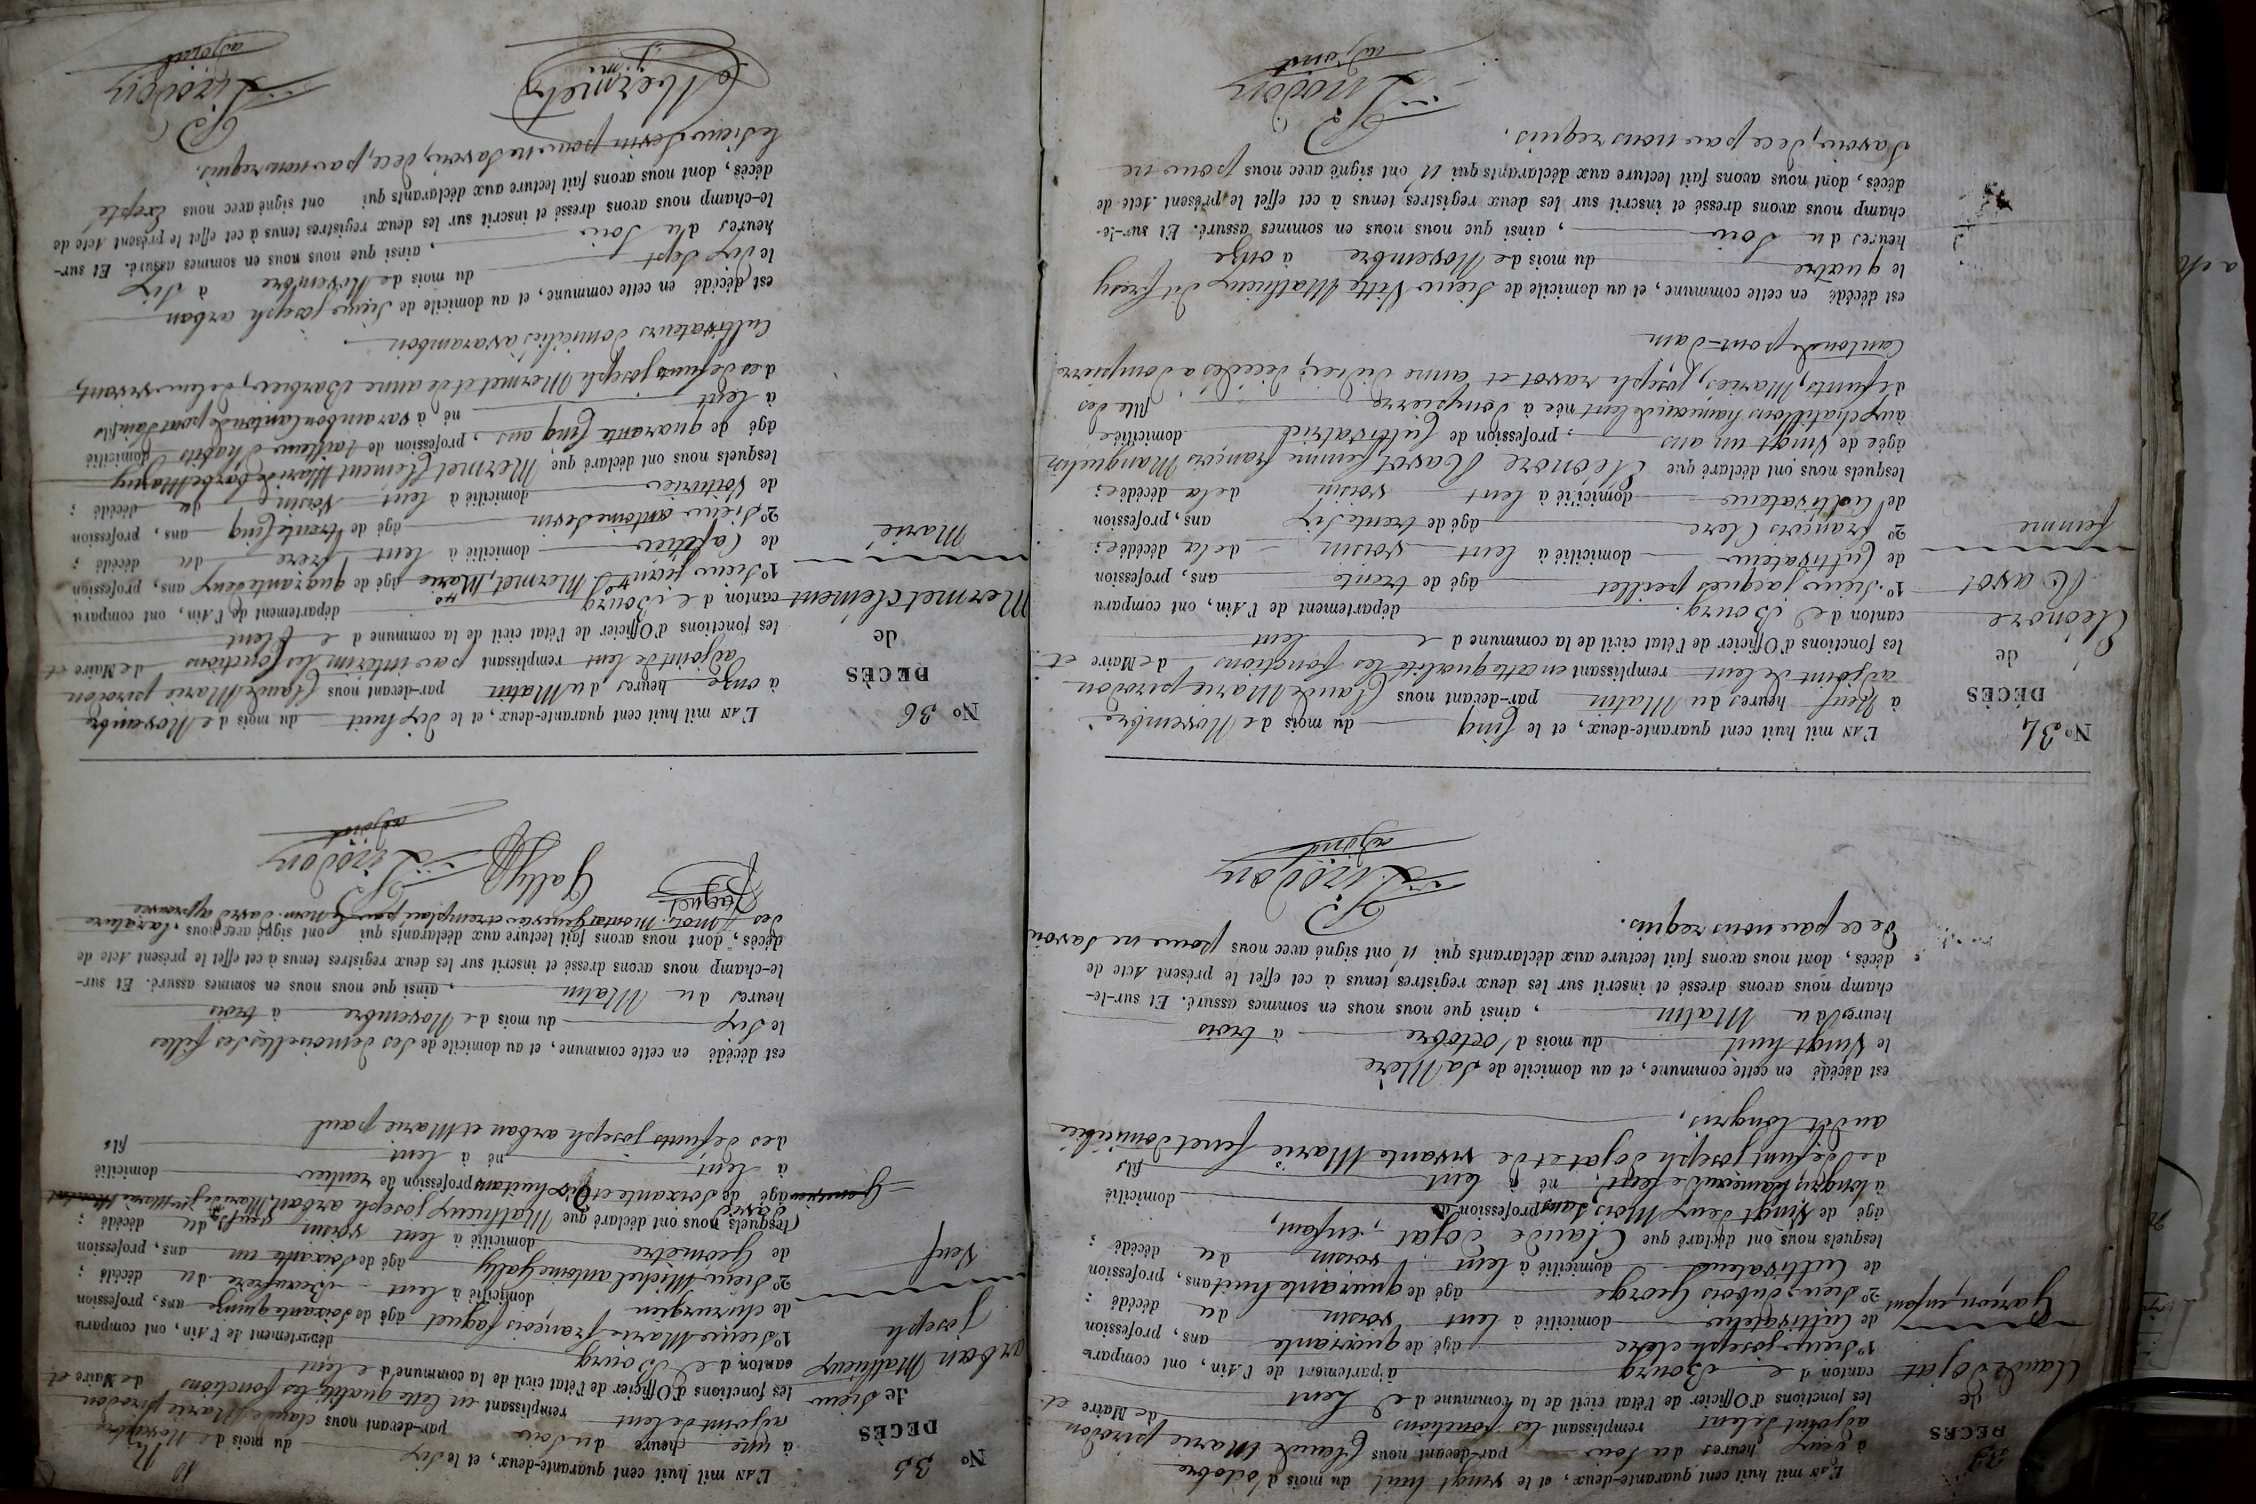 33
DÉCÈS
de
Claude Dojat
Garçon, enfant
L'AN mil huit cent quarante-deux, et le vingt huit du mois d'octobre
à cinq heures du Soir par-devant nous Claude Marie pirodon
adjoint de Lent remplissant les fonctions de Maire et
les fonctions d'Officier de l'état civil de la commune de Lent
canton de Bourg département de l'Ain, ont comparu
1° Sieur joseph clerc âgé de quarante ans, profession
de Cultivateur domicilié à lent voisin du décédé ;
2° Sieur dubois George âgé de quarante huit ans, profession
de Cultivateur domicilié à lent voisin du décédé ;
lesquels nous ont déclaré que Claude Dojat, enfant,
âgé de vingt deux Mois, sans profession domicilié
à longris, hameau de Lent né à lent fils
de défunt joseph dojat et de vivante Marie feret domiciliée
au dit longris,
est décédé en cette commune, et au domicile de Sa Mère
le vingt huit du mois d'octobre à trois
heures du Matin, ainsi que nous nous en sommes assuré. Et sur-le-
champ nous avons dressé et inscrit sur les deux registres tenus à cet effet le présent Acte de
décès, dont nous avons fait lecture aux déclarants qui n'ont signé avec nous pour ne Savoir
de ce par nous requis.
Pirodon
adjoint
N° 34
DÉCÈS
de
Eléonore
Ravot
femme
L'AN mil huit cent quarante-deux, et le Cinq du mois de Novembre
à Neuf heures du Matin par-devant nous Claude Marie pirodon
adjoint de lent remplissant en cette qualité les fonctions de Maire et
les fonctions d'Officier de l'état civil de la commune de lent
canton de Bourg. département de l'Ain, ont comparu
1° Sieur jacques peillet âgé de trente ans, profession
de Cultivateur domicilié à lent voisin de la décédée ;
2° françois Clerc âgé de trente Six ans, profession
de Cultivateur domicilié à lent voisin de la décédée ;
lesquels nous ont déclaré que Eléonore Ravot femme françois Manguelin
âgée de vingt un ans ; profession de Cultivatrice domiciliée
aux chatillons hameau de lent née à dompierre fille des
défunts, Mariés, joseph ravot et anne didier, décédés a dompierre
Canton de pont-dain
est décédée en cette commune, et au domicile de Sieur Vitte Mathieu dit
le quatre du mois de Novembre à onze
heures du Soir, ainsi que nous nous en sommes assuré. Et sur-le-
champ nous avons dressé et inscrit sur les deux registres tenus à cet effet le présent Acte de
décès, dont nous avons fait lecture aux déclarants qui n'ont signé avec nous pour ne
Savoir, de ce par nous requis.
Pirodon
adjoint
10
N° 35
DÉCÈS
de Sieur
arban Mathieu
joseph
Veuf
L'AN mil huit cent quarante-deux, et le dix du mois de Novembre
à une heure du Soir par-devant nous claude Marie pirodon
adjoint de lent remplissant en cette qualité les fonctions de Maire et
les fonctions d'Officier de l'état civil de la commune de lent
canton de Bourg département de l'Ain, ont comparu
1° Sieur Marie françois jaquet âgé de Soixante quinze ans, profession
de chirurgien domicilié à lent Beaufrère du décédé ;
2° Sieur Michel antoine Gally âgé de Soixante un ans, profession
de Géomètre domicilié à lent voisin du décédé ;
lesquels nous ont déclaré que Mathieu joseph arban,
âgé de Soixante et Dix huit ans profession de rentier domicilié
à lent né à lent fils
des défunts joseph arban et Marie paul
est décédé en cette commune, et au domicile de Ses demoiselles Ses filles
le dix du mois de Novembre à trois
heures du Matin, ainsi que nous nous en sommes assuré. Et sur-
le-champ nous avons dressé et inscrit sur les deux registres tenus à cet effet le présent Acte de
décès, dont nous avons fait lecture aux déclarants qui ont signé avec nous. la rature
des mots remplacé par le nom david approuvée
Jaquet
Gally
Pirodon
adjoint
N° 36
DÉCÈS
de
Mermet clément
Marié
L'AN mil huit cent quarante-deux, et le dix huit du mois de Novembre
à onze heures du Matin par-devant nous Claude Marie pirodon
adjoint de lent remplissant par intérim les fonctions de Maire et
les fonctions d'Officier de l'état civil de la commune de lent
canton de Bourg département de l'Ain, ont comparu
1° Sieur jean Mermet, Marié âgé de quarante deux ans, profession
de Cafetier domicilié à lent frère du décédé ;
2° Sieur antoine Sevin âgé de trente Cinq ans, profession
de Voiturier domicilié à lent voisin du décédé ;
lesquels nous ont déclaré que Mermet Clément Marié de
âgé de quarante Cinq ans, profession de tailleur d'habits domicilié
à lent né à varambon Canton de pont dain fils
des défunts joseph Mermet et de anne Barbier, de leur vivant,
Cultivateurs domiciliés à varambon
est décédé en cette commune, et au domicile de Sieur joseph arban
le dix Sept du mois de Novembre à Six
heures du Soir, ainsi que nous nous en sommes assuré. Et sur-
le-champ nous avons dressé et inscrit sur les deux registres tenus à cet effet le présent Acte de
décès, dont nous avons fait lecture aux déclarants qui ont signé avec nous Excepté
le Sieur Sevin pour ne Savoir, de ce, par nous requis.
Mermet
Pirodon
adjoint